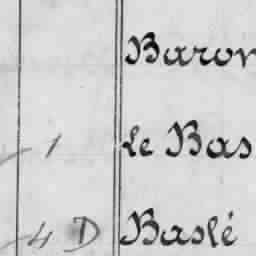 Baron
1 Le Bas
4 D Baslé